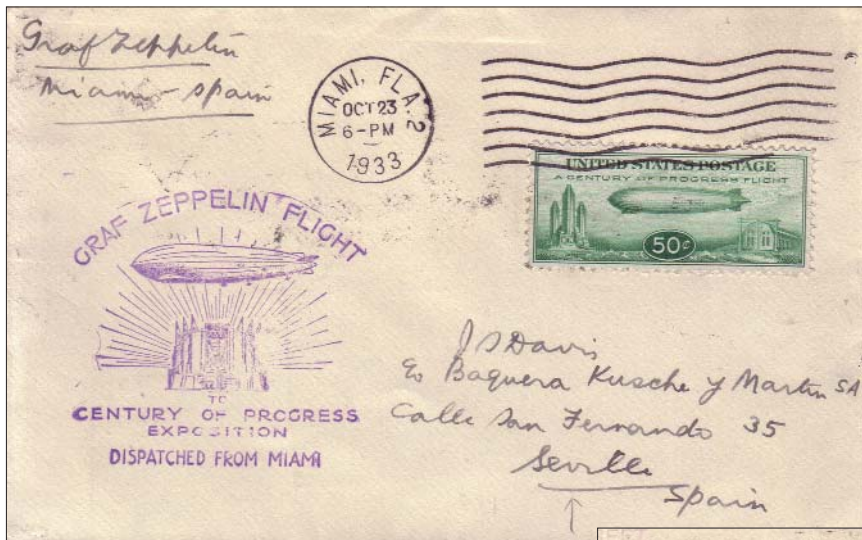 Graf Zeppelin
Miami - Spain
MIAMI, FLA. 2
OCT 23
6-PM
1933
UNITED STATES POSTAGE
A CENTURY OF PROGRESS FLIGHT
50¢
GRAF ZEPPELIN FLIGHT
TO
CENTURY OF PROGRESS
EXPOSITION
DISPATCHED FROM MIAMI
J S Davis
c/o Baquera Kusche y Martin SA
Calle San Fernando 35
Seville
Spain